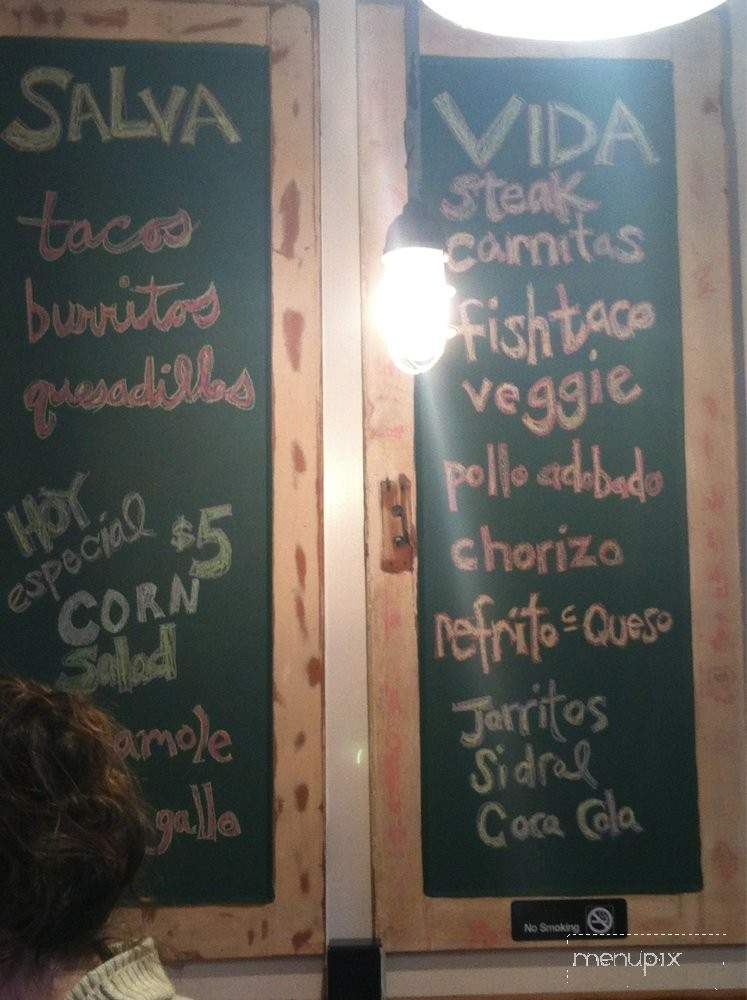 SALVA
tacos
burritos
quesadillas
HOY
especial $5
CORN
Salad
amole
gallo
VIDA
Steak
carnitas
fish taco
veggie
pollo adobado
chorizo
refrito c Queso
Jarritos
Sidral
Coca Cola
No Smoking
menupix